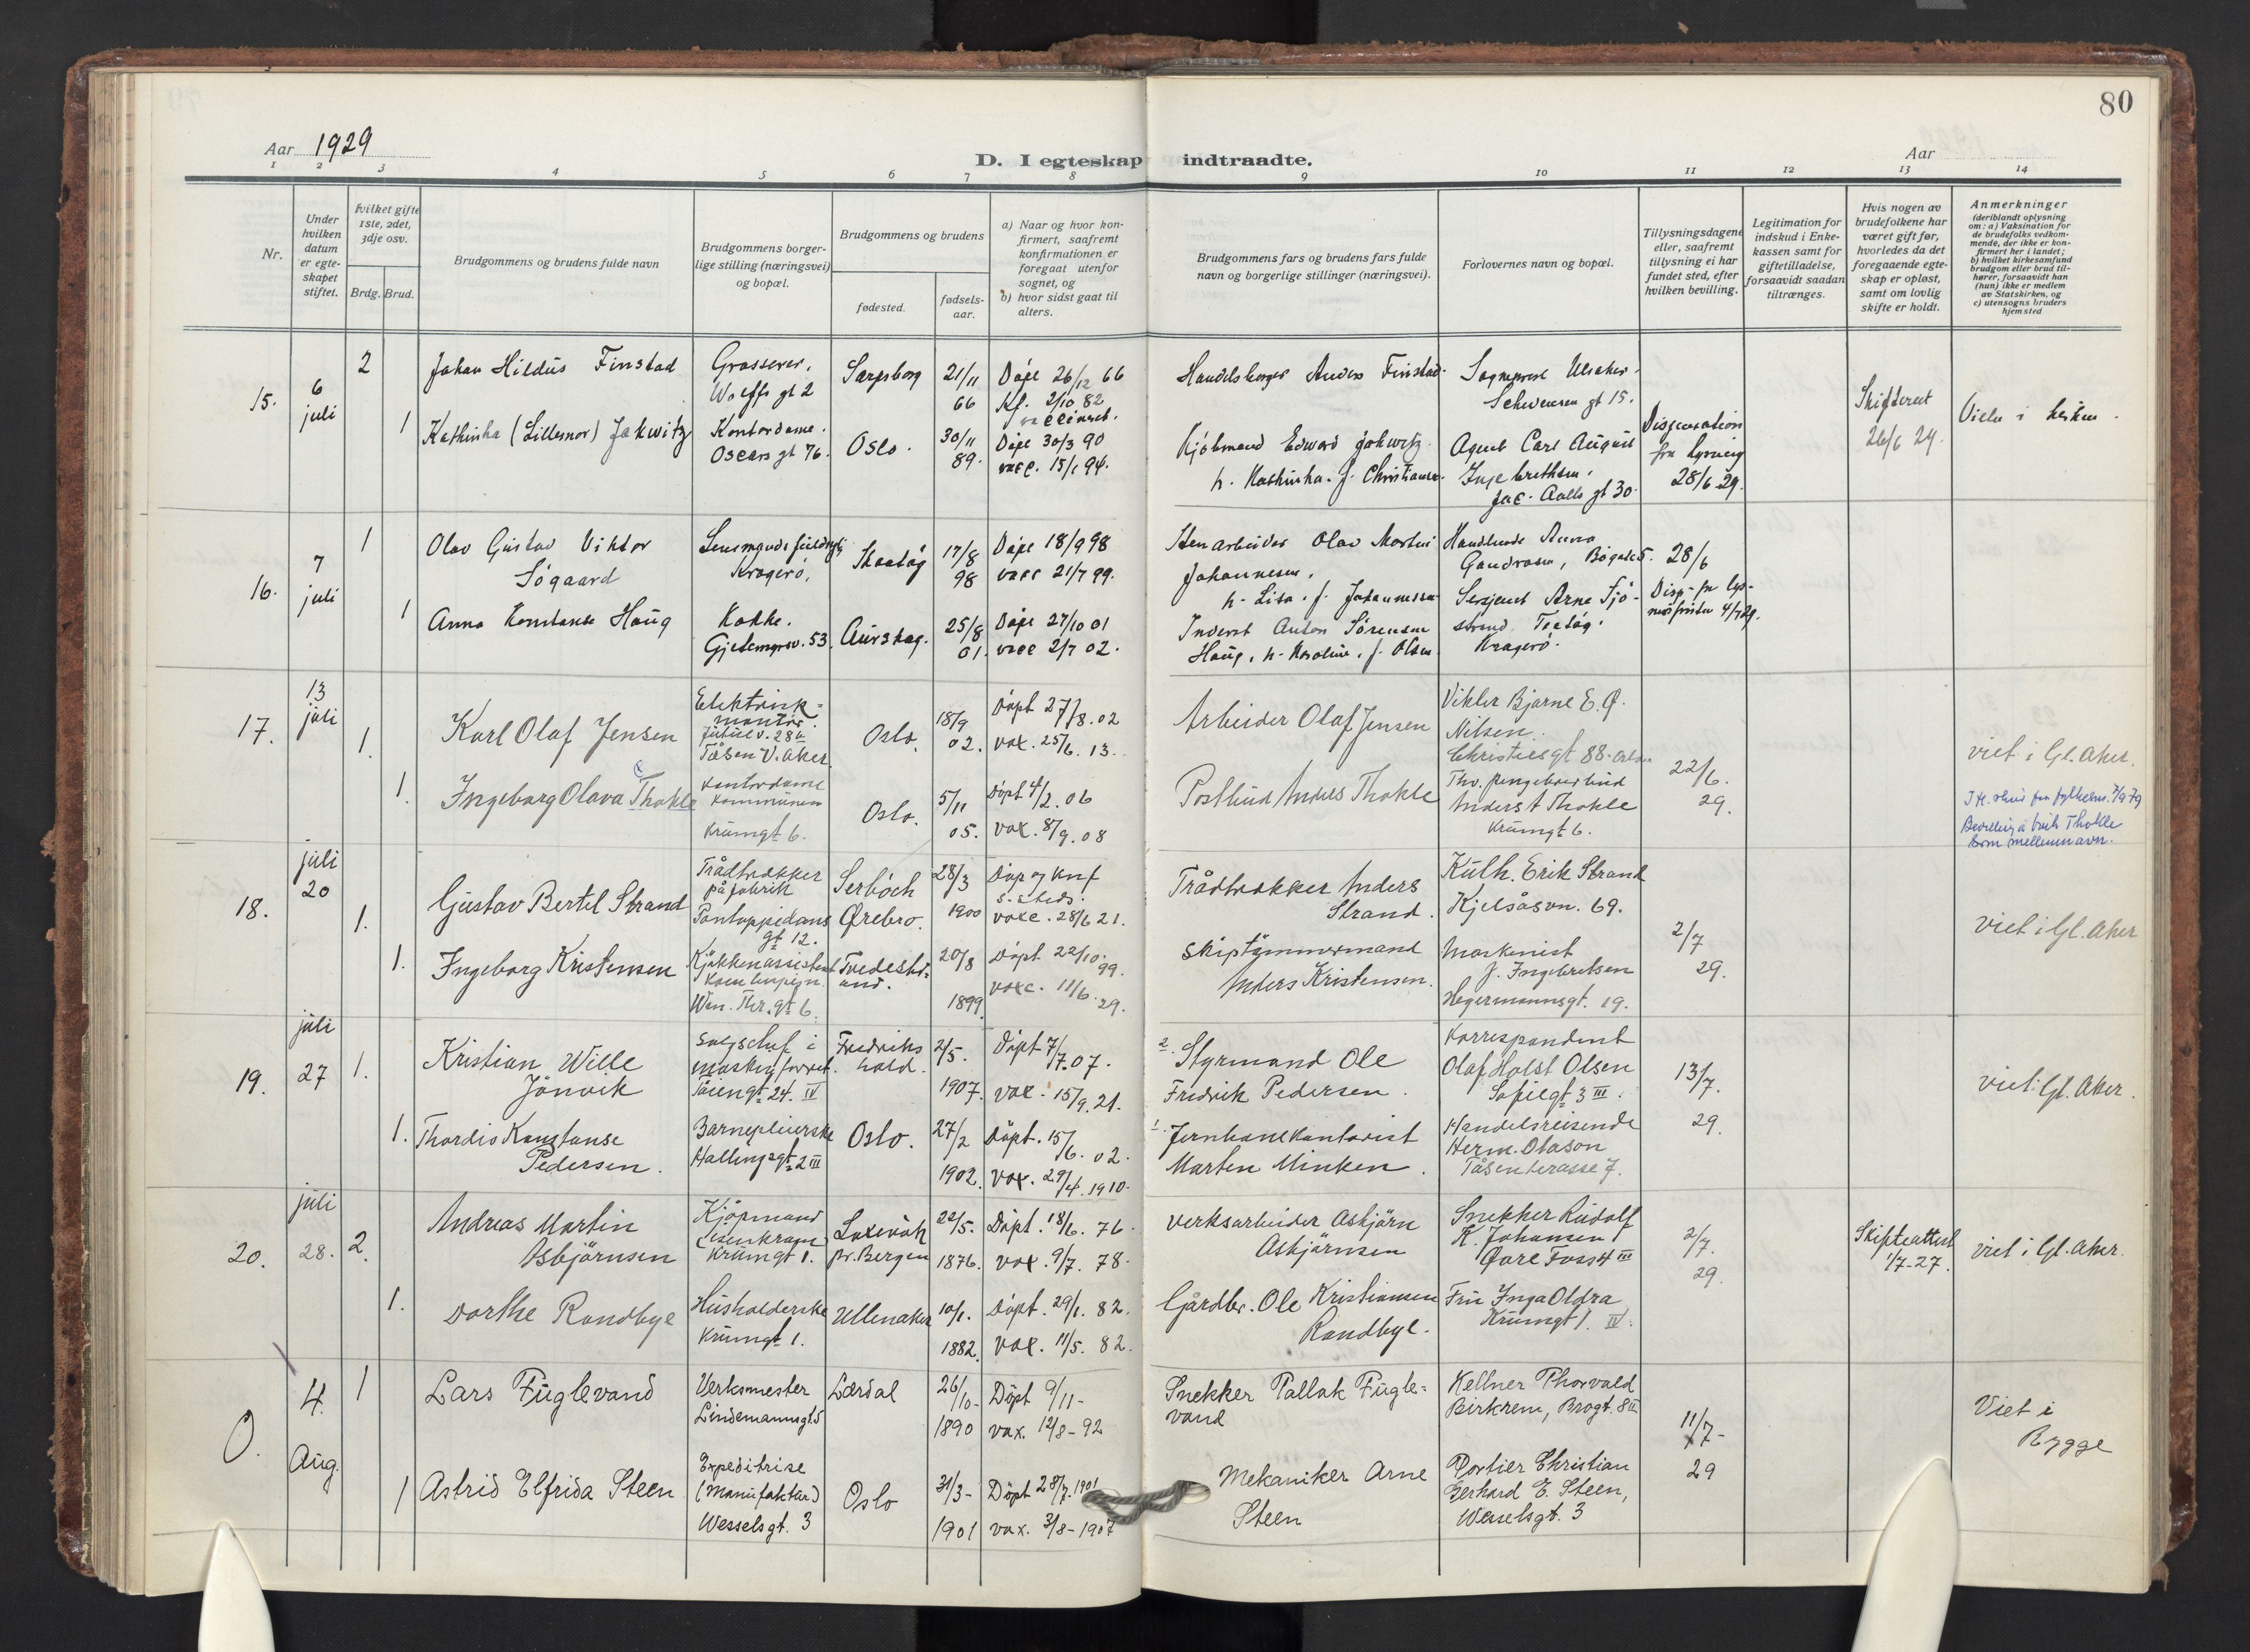 80
Aar 1929
D. I egteskap indtraadte.
Aar
1 2 3 4 5 6 7 8 9 10 11 12 13 14
Nr.
Under hvilken datum er egteskapet stiftet.
hvilket gifte 1ste, 2det, 3dje osv.
Brdg. Brud.
Brudgommens og brudens fulde navn
Brudgommens borgerlige stilling (næringsvei) og bopæl.
Brudgommens og brudens
fødested.
fødselsaar.
a) Naar og hvor konfirmert, saafremt konfirmationen er foregaat utenfor sognet, og
b) hvor sidst gaat til alters.
Brudgommens fars og brudens fars fulde navn og borgerlige stillinger (næringsvei).
Forlovernes navn og bopæl.
Tillysningsdagene eller, saafremt tillysning ei har fundet sted, efter hvilken bevilling.
Legitimation for indskud i Enkekassen samt for giftetilladelse, forsaavidt saadan tiltrænges.
Hvis nogen av brudefolkene har været gift før, hvorledes da det foregaaende egteskap er opløst, samt om lovlig skifte er holdt.
Anmerkninger
(deriblandt oplysning om: a) Vaksination for de brudefolks vedkommende, der ikke er konfirmert her i landet; b) hvilket kirkesamfund brudgom eller brud tilhører, forsaavidt han (hun) ikke er medlem av Statskirken, og c) utensogns bruders hjemsted
15.
6
juli
2
Johan Hildus Finstad
Grosserer.
Wolffs gt 2
Sarpsborg
21/11
66
Døpt 26/12 66
Kf. 2/10 82
Handelsborger Anders Finstad
Schwensen gt 15.
1
Kathinka (Lillemor) Jakwitz
Kontordame.
Oscars gt 76.
Oslo.
30/11
89.
Døpt 30/3 90
vacc. 15/1 94.
Kjøbmand Edward Jakwitz
h. Kathinka. f. Christiansen
Agent Carl August
Ingebrethsen.
Jac. Aalls gt 30.
Dispensation
fra lysning
28/6 29.
26/6 29.
Viet i kirken.
16.
7
juli
1
Olav Gustav Viktor
Søgaard
Kragerø.
Skaatøy
17/8
98
Døpt 18/9 98
vacc 21/7 99.
Stenarbeider Olav Martin
Johannesen.
h. Lisa. f. Johannessen
28/6
1
Anna Konstanse Haug
Kokke.
Gjetemyrsv. 53.
Aurskog.
25/8
01.
Døpt 27/10 01
vacc 2/7 02.
Inderst Anton Sørensen
Haug, h. Karoline, f. Olsen
Sersjent Arne Sjøstrand
Kragerø.
17.
13
juli
1.
Karl Olaf Jensen
Elektrisk
montør.
Tåsen V. Aker.
Oslo.
18/9
02.
Døpt 27/8. 02
vax. 25/6. 13.
Arbeider Olaf Jensen
Vikler Bjarne E. Q.
Nilsen.
Christiesgt 88. Oslo
1.
Ingeborg Olava Thokle
Kontordame
Kommunen
Krumgt 6.
Oslo.
5/11
05.
Døpt 4/2. 06
vax. 8/9. 08
Postbud Anders Thokle
Anders A Thokle
Krumgt 6.
22/6.
29.
viet i Gl. Aker.
som mellemnavn.
18.
juli
20
1.
Gustav Bertil Strand
Trådtrekker
på fabrik
Pontoppidans
gt 12.
Ørebro.
28/3
1900
Døp og knf
s. steds.
vacc. 28/6 21.
Trådtrekker Anders
Strand.
Erik Strand
Kjelsåsvn. 69.
1.
Ingeborg Kristensen
Kjøkkenassistent
Tvedestrand.
20/8
1899.
Døpt 22/10. 99.
vacc. 11/6. 29.
skipstømmermand
Anders Kristensen.
Maskinist
J. Ingebretsen
Hegermannsgt. 19.
2/7
29.
viet i Gl. Aker
19.
juli
27
1.
Kristian Wille
Jönvik
Salgschef i
maskinforret.
Tøiengt 24. IV
Fredrikshald.
2/5.
1907.
Døpt 7/7. 07.
vax. 15/9. 21.
2. Styrmand Ole
Fredrik Pedersen.
Korrespondent
Olaf Holst Olsen
Sofiegt 3 III.
1.
Thordis Konstanse
Pedersen.
Barnepleierske
Hallingsgt. 2 III
Oslo.
27/2
1902.
Døpt. 15/6. 02.
vax. 29/4. 1910.
1. Jernbanekontorist
Morten Minken.
Handelsreisende
Herm. Olason
Tåsen terasse 7.
13/7.
29.
viet i Gl. Aker.
20.
juli
28.
2.
Andreas Martin
Osbjörnsen
Kjøpmand
(isenkram)
Krumgt 1.
Laksevåk
pr. Bergen
22/5.
1876.
Døpt. 18/6. 76.
vax. 9/7. 78.
Verksarbeider Asbjörn
Asbjörnsen
Snekker Rudolf
K. Johansen
2/7.
29.
Skifteattest
1/7-27.
viet i Gl. Aker.
1.
Dorthe Randbye
Husholderske
Krumgt 1.
Ullensaker
10/1.
1882.
Døpt. 29/1. 82.
vax. 11/5. 82.
Gårdbr. Ole Kristiansen
Randbye.
Fru Inga Oldra
Krumgt 1. IV.
0.
4.
Aug.
1
Lars Fuglevand
Verksmester
Lindemannsgt. 5
Lærdal
26/10-
1890
Døpt 9/11-
vax. 12/8-92
Snekker Pallak Fuglevand
Kellner Thorvald
Birkrem, Brogt. 8 II
11/7-
29
Viet i
Rygge
1
Astrid Elfrida Steen
Expeditrise
(Manufaktur)
Wesselsgt. 3
Oslo
31/3-
1901
Døpt 28/7. 1901
vax. 3/8-1907
Mekaniker Arne
Steen
Portier Christian
Gerhard E. Steen,
Wesselsgt. 3